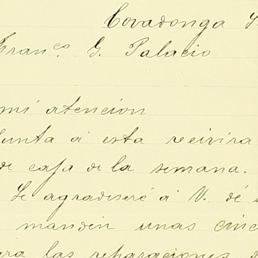 Covadonga
Franco. G. Palacio
mi atencion
Junta á esta recivira
de caja de la semana.
Le agradiseré á V. dé
manden unas cinc
ra las reparaciones